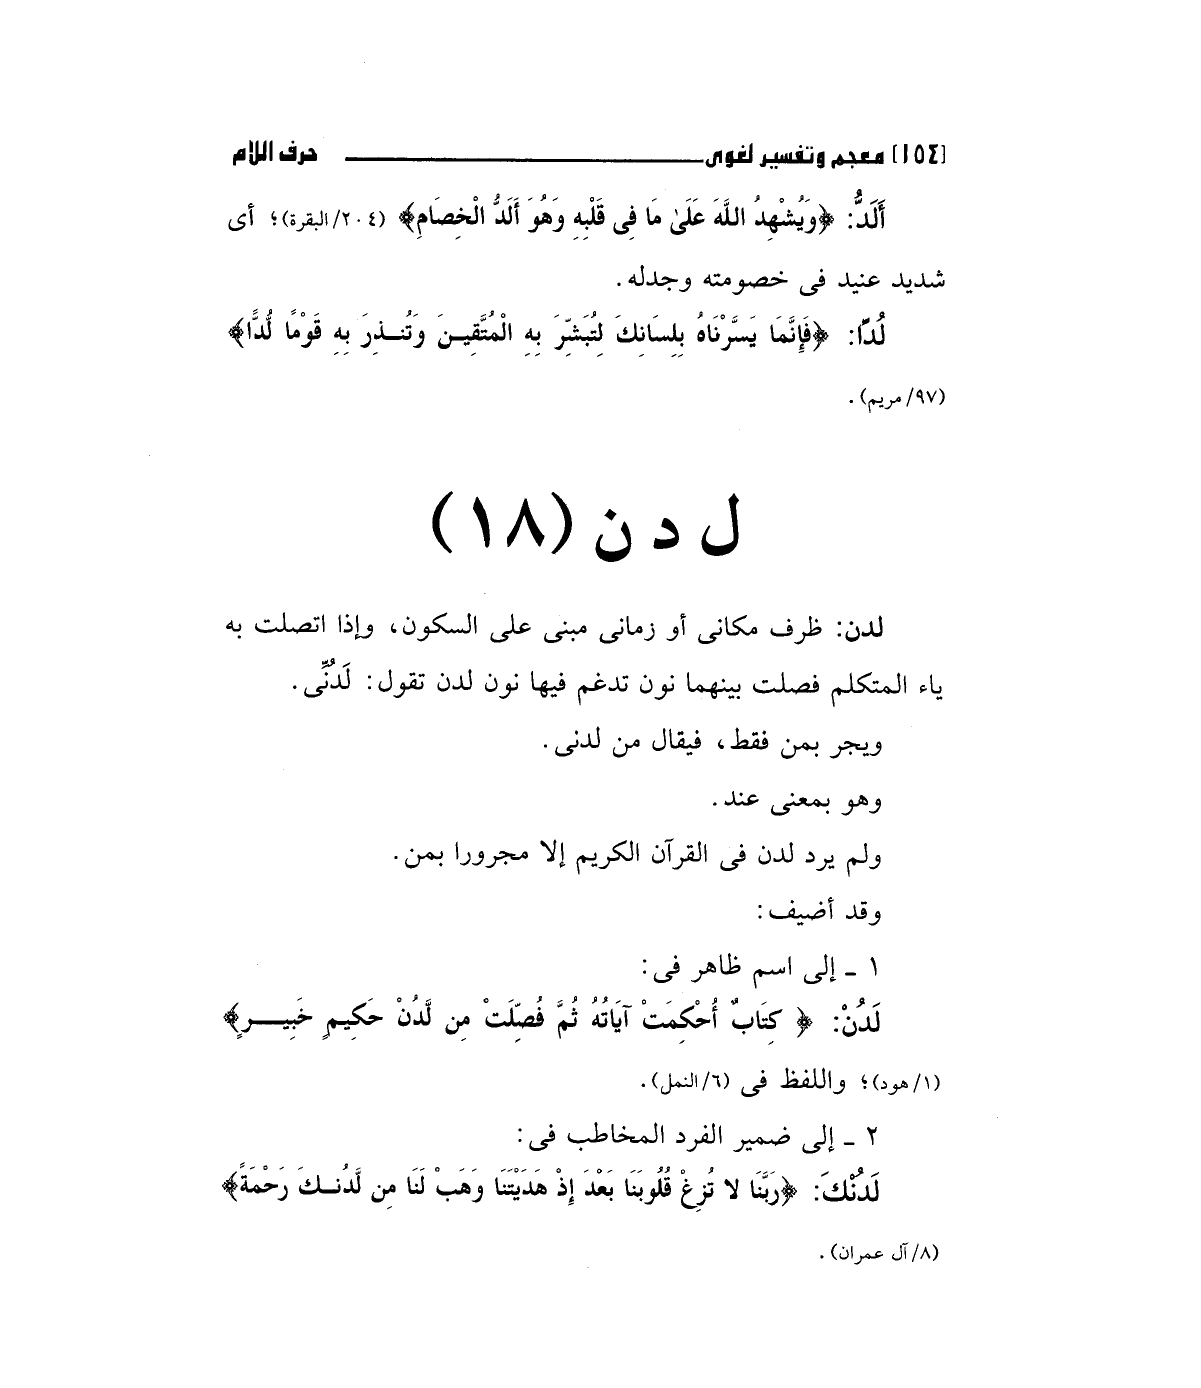 [١٥٤] معجم وتفسير لغوى حرف اللام
أَلَدُّ: ﴿وَيُشْهِدُ اللَّهَ عَلَىٰ مَا فِى قَلْبِهِ وَهُوَ أَلَدُّ الْخِصَامِ﴾ (٢٠٤/البقرة)؛ أى
شديد عنيد فى خصومته وجدله.
لُدًّا: ﴿فَإِنَّمَا يَسَّرْنَاهُ بِلِسَانِكَ لِتُبَشِّرَ بِهِ الْمُتَّقِينَ وَتُنذِرَ بِهِ قَوْمًا لُّدًّا﴾
(٩٧/مريم).
ل د ن (١٨)
لدن: ظرف مكانى أو زمانى مبنى على السكون، وإذا اتصلت به
ياء المتكلم فصلت بينهما نون تدغم فيها نون لدن تقول: لَدُنِّى.
ويجر بمن فقط، فيقال من لدنى.
وهو بمعنى عند.
ولم يرد لدن فى القرآن الكريم إلا مجرورا بمن.
وقد أضيف:
١ ـ إلى اسم ظاهر فى:
لَدُنْ: ﴿ كِتَابٌ أُحْكِمَتْ آيَاتُهُ ثُمَّ فُصِّلَتْ مِن لَّدُنْ حَكِيمٍ خَبِيرٍ﴾
(١/هود)؛ واللفظ فى (٦/النمل).
٢ ـ إلى ضمير الفرد المخاطب فى:
لَدُنْكَ: ﴿رَبَّنَا لا تُزِغْ قُلُوبَنَا بَعْدَ إِذْ هَدَيْتَنَا وَهَبْ لَنَا مِن لَّدُنكَ رَحْمَةً﴾
(٨/آل عمران).